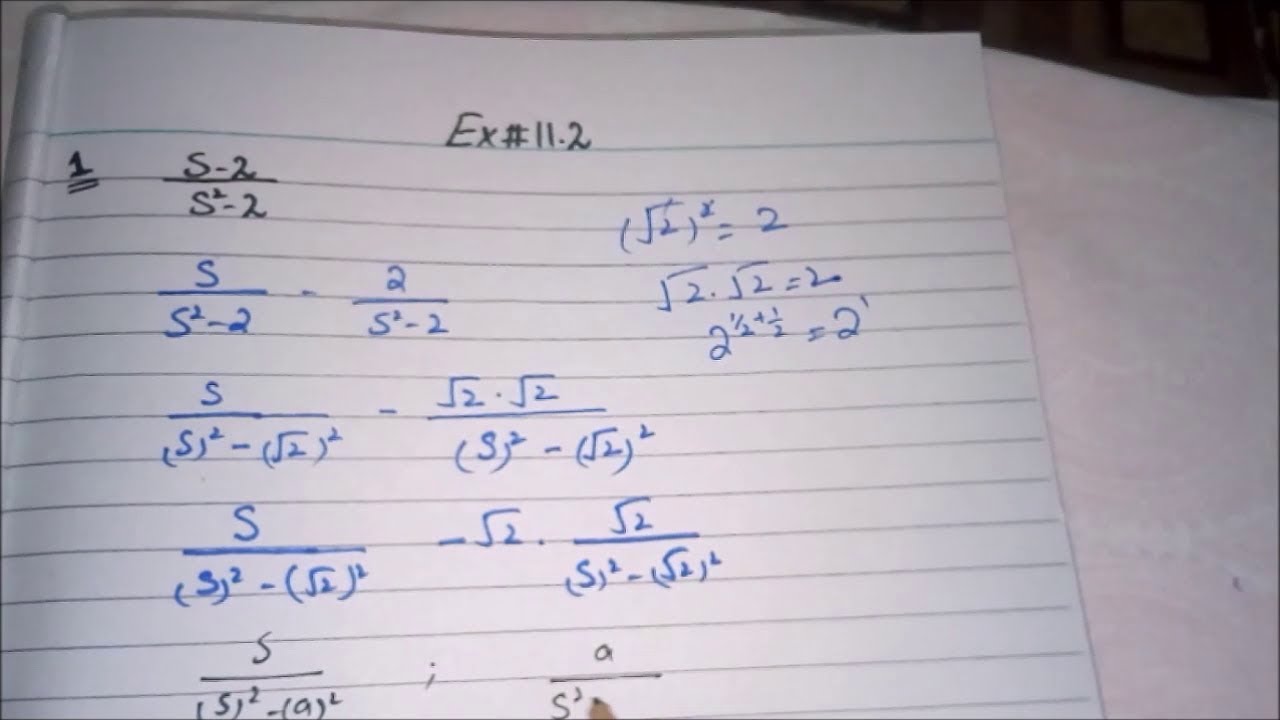 Ex#11.2
1 (S-2)/(S²-2)
S/(S²-2) - 2/(S²-2)
(√2)² = 2
√2·√2 = 2
2^(1/2+1/2) = 2¹
S/((S)²-(√2)²) - (√2·√2)/((S)²-(√2)²)
S/((S)²-(√2)²) -√2·√2/((S)²-(√2)²)
S/((S)²-(a)²) ; a/S²